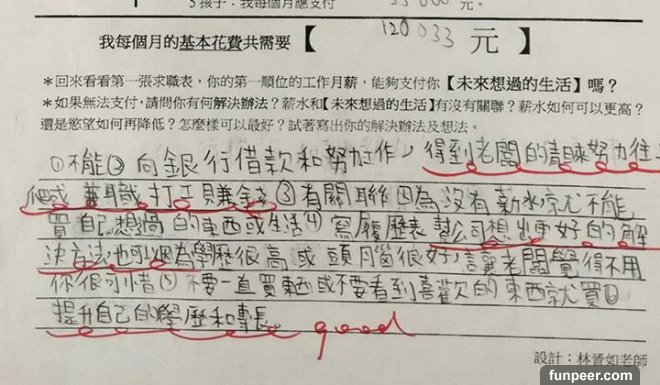 5 孩子：我每個月應支付 25000 元。
我每個月的基本花費共需要【 120033 元】
＊回來看看第一張求職表，你的第一順位的工作月薪，能夠支付你【未來想過的生活】嗎？
＊如果無法支付，請問你有何解決辦法？薪水和【未來想過的生活】有沒有關聯？薪水如何可以更高？
還是慾望如何再降低？怎麼樣可以最好？試著寫出你的解決辦法及想法。
①不能②向銀行借款和努力工作，得到老闆的青睞努力往上
爬或兼職打工賺錢③有關聯因為沒有薪水就不能
買自己想過的東西或生活④寫履歷表幫公司想出更好的解
決方法，也可以因為學歷很高或頭腦很好，讓老闆覺得不用
你很可惜⑤不要一直買東西或不要看到喜歡的東西就買⑥
提升自己的學歷和專長。 good
設計：林晉如老師
funpeer.com